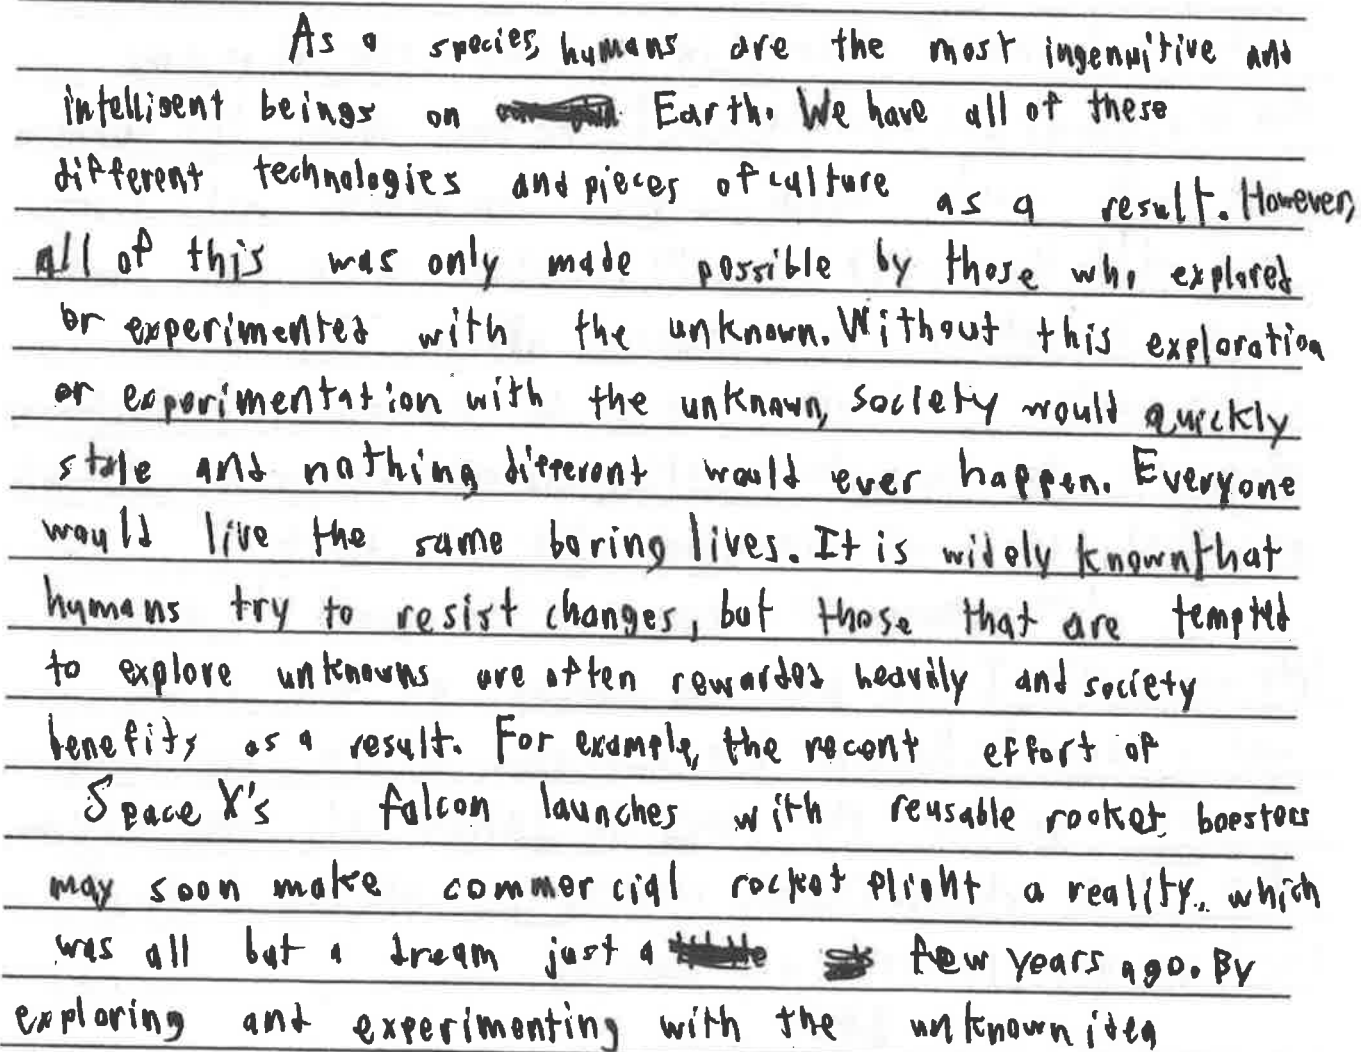 As a species, humans are the most ingenuitive and
intelligent beings on Earth. We have all of these
different technologies and pieces of culture as a result. However,
all of this was only made possible by those who explored
or experimented with the unknown. Without this exploration
or experimentation with the unknown, society would quickly
stale and nothing different would ever happen. Everyone
would live the same boring lives. It is widely known that
humans try to resist changes, but those that are tempted
to explore unknowns are often rewarded heavily and society
benefits as a result. For example, the recent effort of
Space X's falcon launches with reusable rocket boosters
may soon make commercial rocket flight a reality, which
was all but a dream just a few years ago. By
exploring and experimenting with the unknown idea